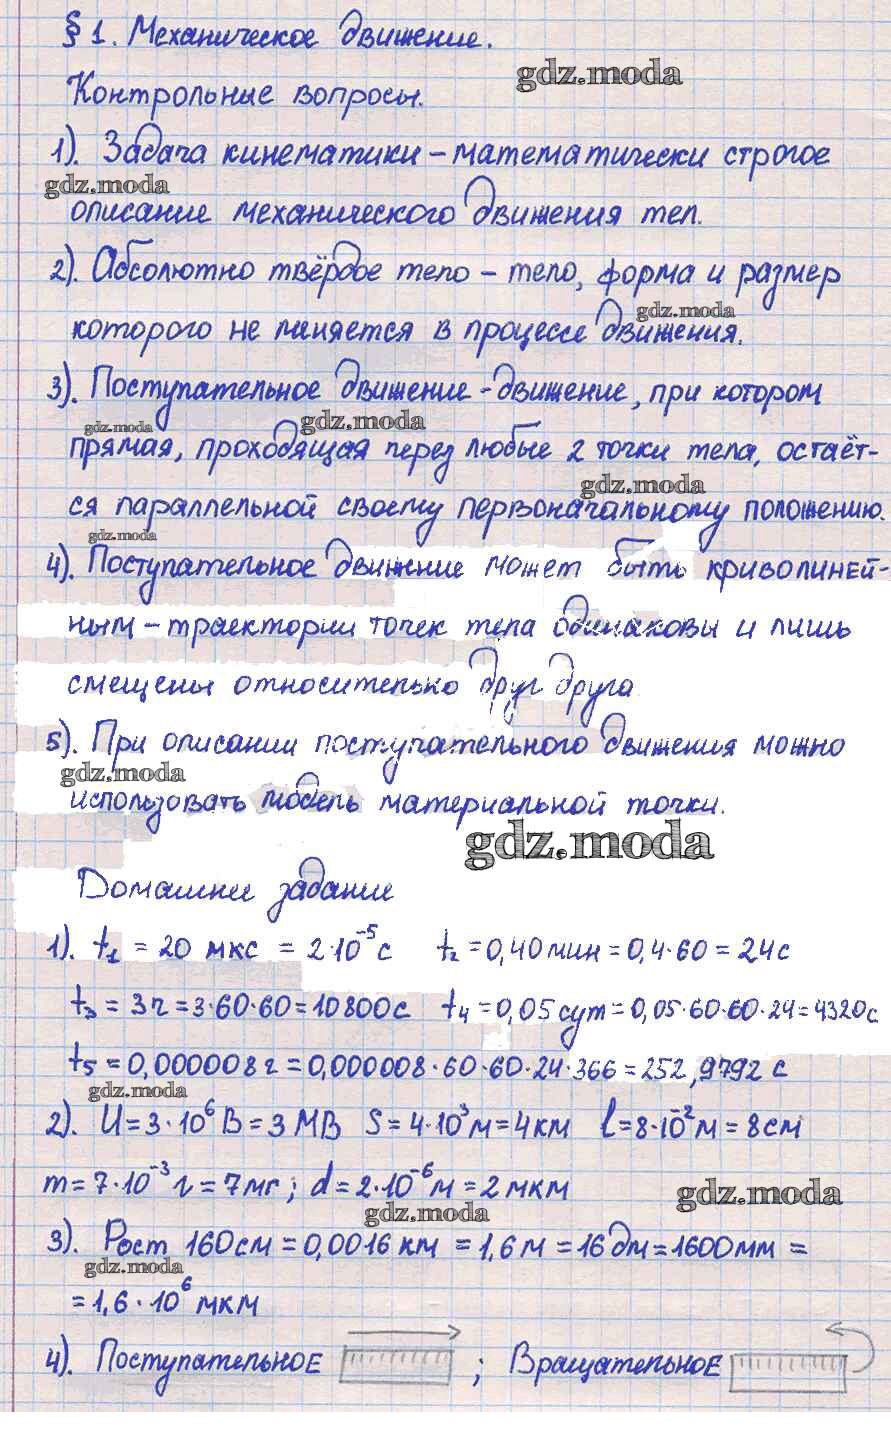 § 1. Механическое движение.
gdz.moda
Контрольные вопросы.
1). Задача кинематики – математически строгое
gdz.moda
описание механического движения тел.
2). Абсолютно твёрдое тело – тело, форма и размер
gdz.moda
которого не меняется в процессе движения.
3). Поступательное движение - движение, при котором
gdz.moda gdz.moda
прямая, проходящая через любые 2 точки тела, остаёт-
gdz.moda
ся параллельной своему первоначальному положению.
gdz.moda
4). Поступательное движение может быть криволиней-
ным – траектории точек тела одинаковы и лишь
смещены относительно друг друга
5). При описании поступательного движения можно
gdz.moda
использовать модель материальной точки.
gdz.moda
Домашнее задание
1). t₁ = 20 мкс = 2·10⁻⁵ с t₂ = 0,40 мин = 0,4·60 = 24 с
t₃ = 3 ч = 3·60·60 = 10800 с t₄ = 0,05 сут = 0,05·60·60·24 = 4320 с
t₅ = 0,000008 г = 0,000008·60·60·24·366 = 252,9792 с
gdz.moda
2). U = 3·10⁶ В = 3 МВ S = 4·10³ м = 4 км l = 8·10⁻² м = 8 см
m = 7·10⁻³ г = 7 мг; d = 2·10⁻⁶ м = 2 мкм
gdz.moda
gdz.moda
3). Рост 160 см = 0,0016 км = 1,6 м = 16 дм = 1600 мм =
gdz.moda
= 1,6·10⁶ мкм
4). Поступательное ; Вращательное